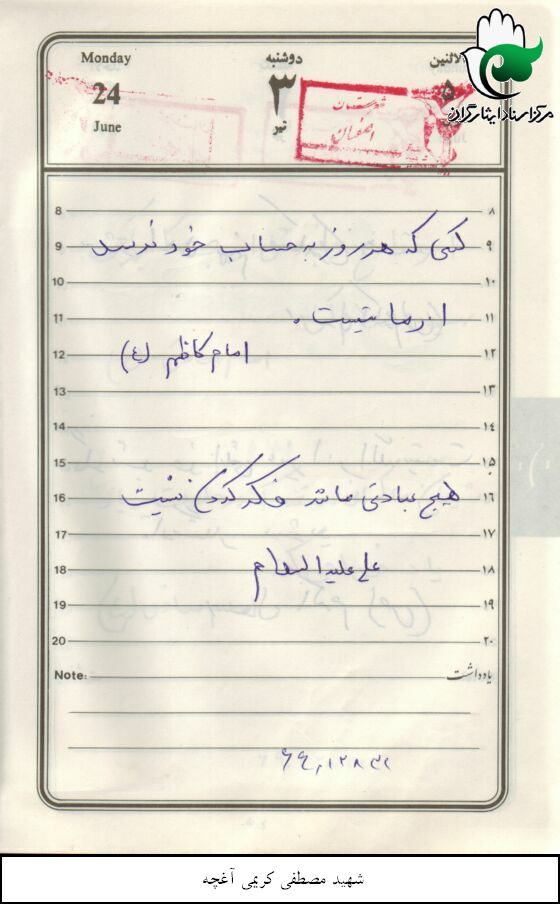 Monday دوشنبه الاثنین
24 ۳ ۵
June تیر
شهرستان
اصفهان
مرکز اسناد ایثارگران
8 ۸
9 کسی که هر روز به حساب خود نرسد ۹
10 ۱۰
11 از ما نیست . ۱۱
12 امام کاظم (ع) ۱۲
13 ۱۳
14 ۱۴
15 ۱۵
16 هیچ عبادتی مانند فکر کردن نیست ۱۶
17 ۱۷
18 علی علیه السلام ۱۸
19 ۱۹
20 ۲۰
Note: یادداشت
شهید مصطفی کریمی آغچه